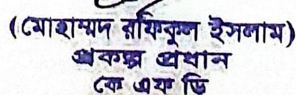 (মোহাম্মদ রফিকুল ইসলাম)
প্রকল্প প্রধান
কে এফ ডি